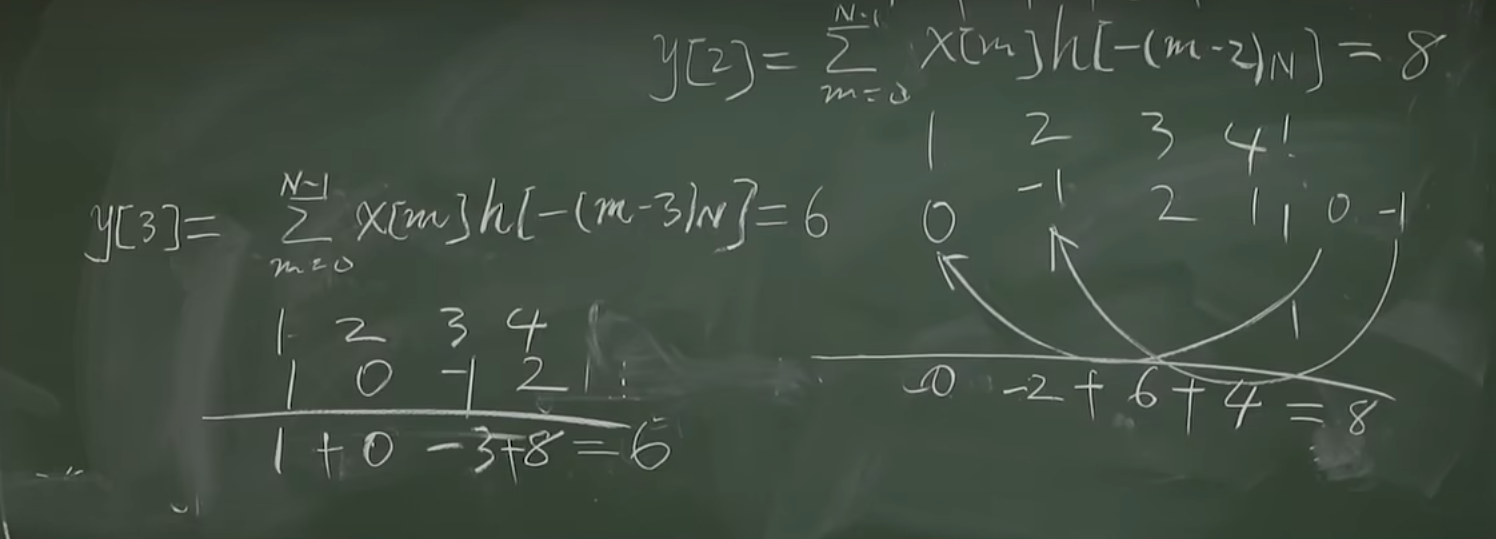 y[2] = Σ_{m=0}^{N-1} x[m]h[-(m-2)_N] = 8
1 2 3 4
0 -1 2 1 | 0 -1
-0 -2 + 6 + 4 = 8
y[3] = Σ_{m=0}^{N-1} x[m]h[-(m-3)_N] = 6
1 2 3 4
1 0 -1 2 |
1 + 0 - 3 + 8 = 6